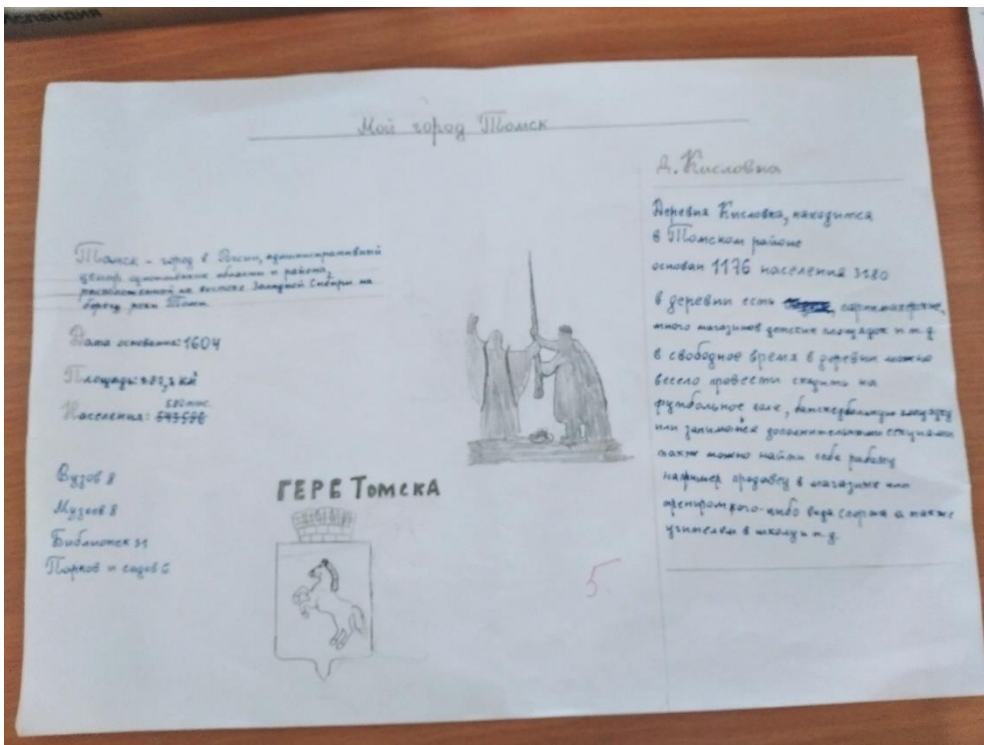 Исландия
Мой город Томск
Томск - город в России, административный
центр одноимённых области и района,
расположенный на востоке Западной Сибири на
берегу реки Томи.
Дата основания: 1604
Площадь: км²
Населения:
Вузов 8
Музеев 8
Библиотек 31
Парков и садов 6
ГЕРБ ТОМСКА
5
д. Кисловка
Деревня Кисловка, находится
в Томском районе
основан 1176 населения 3180
в деревни есть
много магазинов детских площадок и т.д
в свободное время в деревни можно
весело провести сходить на
футбольное поле, баскетбольную площадку
или заниматся дополнительными секциями
также можно найти себе работу
например продавец в магазине или
тренером кого-либо вида спорта а также
учителем в школу и т.д.